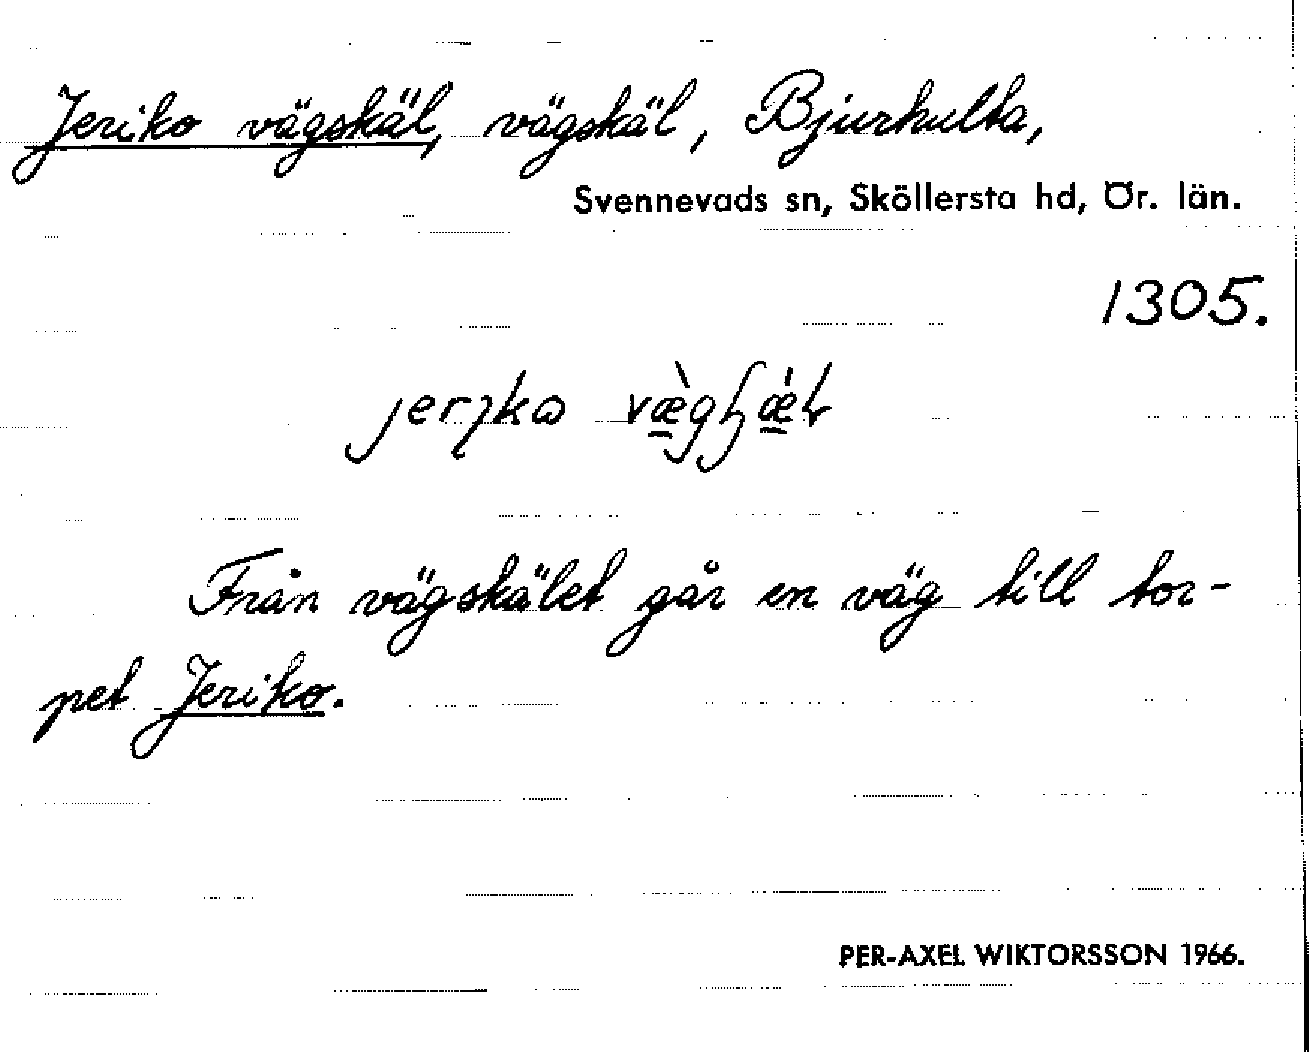 Jeriko vägskäl, vägskäl, Bjurhulta,
Svennevads sn, Sköllersta hd, Ör. län.
1305.
Från vägskälet går en väg till tor-
pet Jeriko.
PER-AXEL WIKTORSSON 1966.